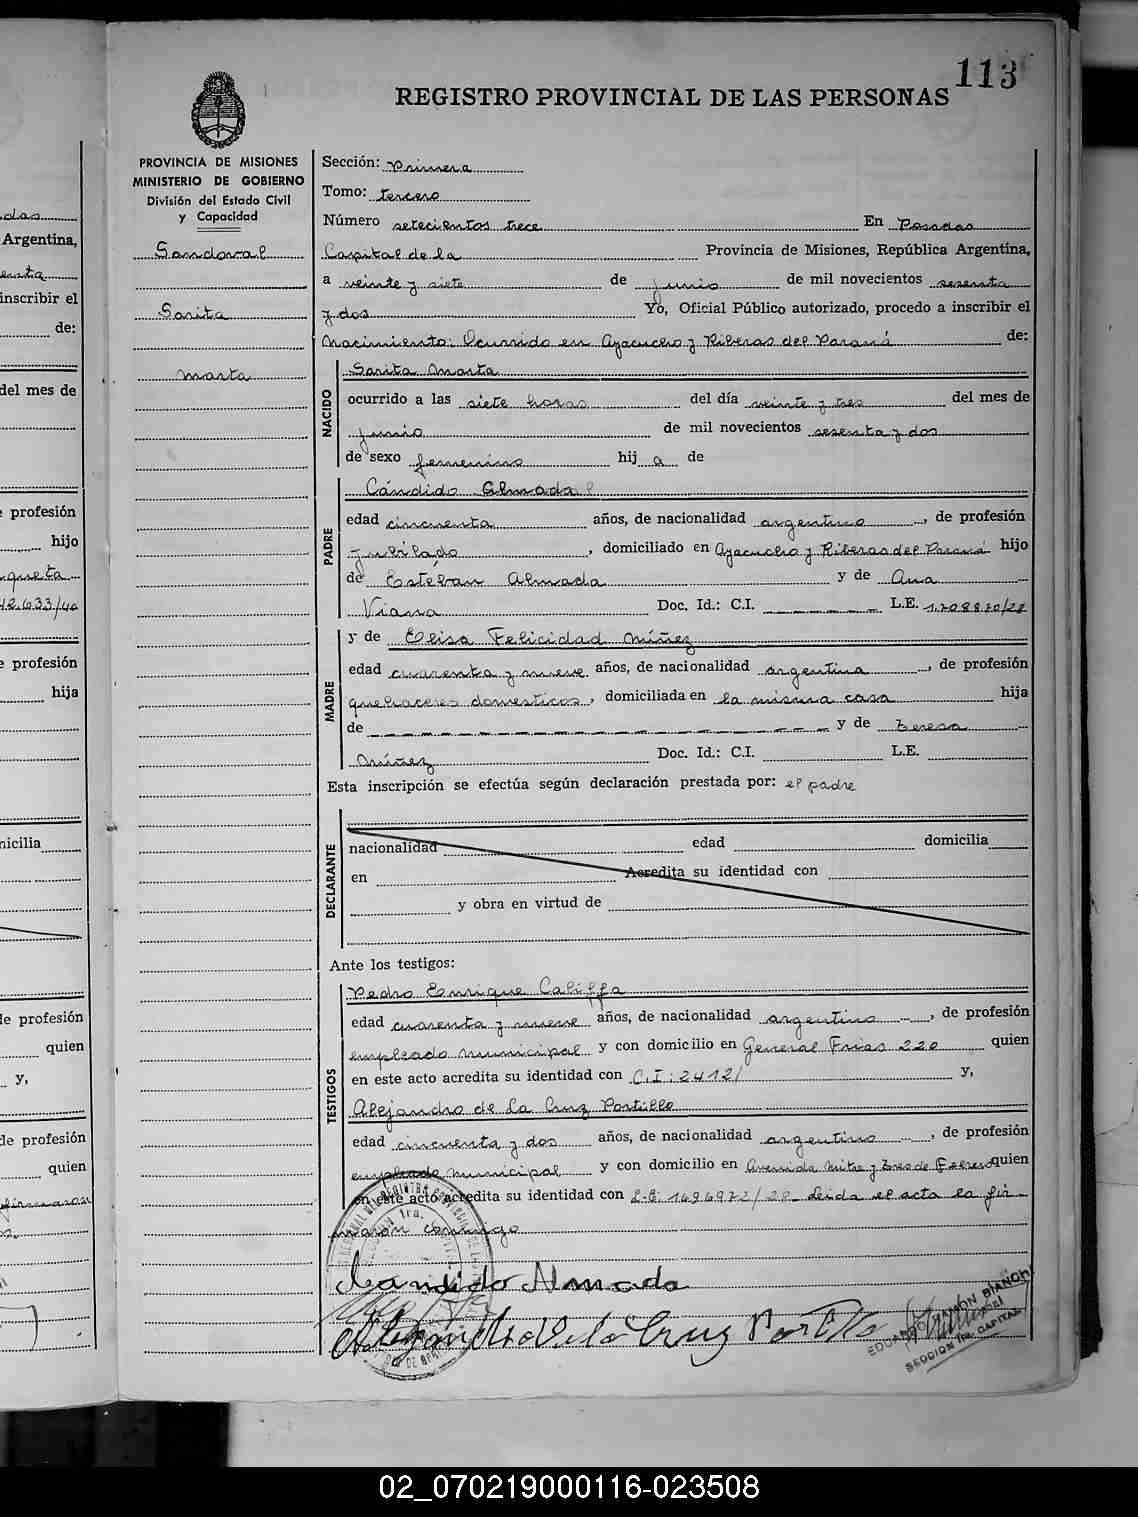 113
REGISTRO PROVINCIAL DE LAS PERSONAS
PROVINCIA DE MISIONES
MINISTERIO DE GOBIERNO
División del Estado Civil
y Capacidad
Sandoval
Sarita
marta
Sección: Primera
Tomo: tercero
Número setecientos trece En Posadas
Capital de la Provincia de Misiones, República Argentina,
a veinte y siete de junio de mil novecientos sesenta
y dos Yo, Oficial Público autorizado, procedo a inscribir el
Nacimiento: Ocurrido en Ayacucho y Riberas del Paraná de:
NACIDO
Sarita Marta
ocurrido a las siete horas del día veinte y tres del mes de
junio de mil novecientos sesenta y dos
de sexo femenino hij a de
PADRE
Cándido Almada
edad cincuenta años, de nacionalidad argentino, de profesión
jubilado, domiciliado en Ayacucho y Riberas del Paraná hijo
de Estéban Almada y de Ana
Viana Doc. Id.: C.I. L.E. 1.708820/28
MADRE
y de Elisa Felicidad Núñez
edad cuarenta y nueve años, de nacionalidad argentina, de profesión
quehaceres domesticos, domiciliada en la misma casa hija
de y de Teresa
Núñez Doc. Id.: C.I. L.E.
Esta inscripción se efectúa según declaración prestada por: el padre
DECLARANTE
nacionalidad edad domicilia
en Acredita su identidad con
y obra en virtud de
Ante los testigos:
TESTIGOS
Pedro Enrique Califfa
edad cuarenta y nueve años, de nacionalidad argentino, de profesión
empleado municipal y con domicilio en General Frias 220 quien
en este acto acredita su identidad con C.I: 24121 y,
Alejandro de la Cruz Portillo
edad cincuenta y dos años, de nacionalidad argentino, de profesión
empleado municipal y con domicilio en Avenida Mitre y Tres de Febrero quien
en este acto acredita su identidad con L.E: 1696972/28 Leida el acta la fir-
maron conmigo
Candido Almada
Alejandro de la Cruz Portillo
EDUARDO RAMÓN BIANCHI
SECCION 1ra. CAPITAL
das
Argentina,
enta
inscribir el
de:
del mes de
profesión
hijo
queta
42.633/40
e profesión
hija
nicilia
de profesión
quien
y,
de profesión
quien
firmaron
02_070219000116-023508